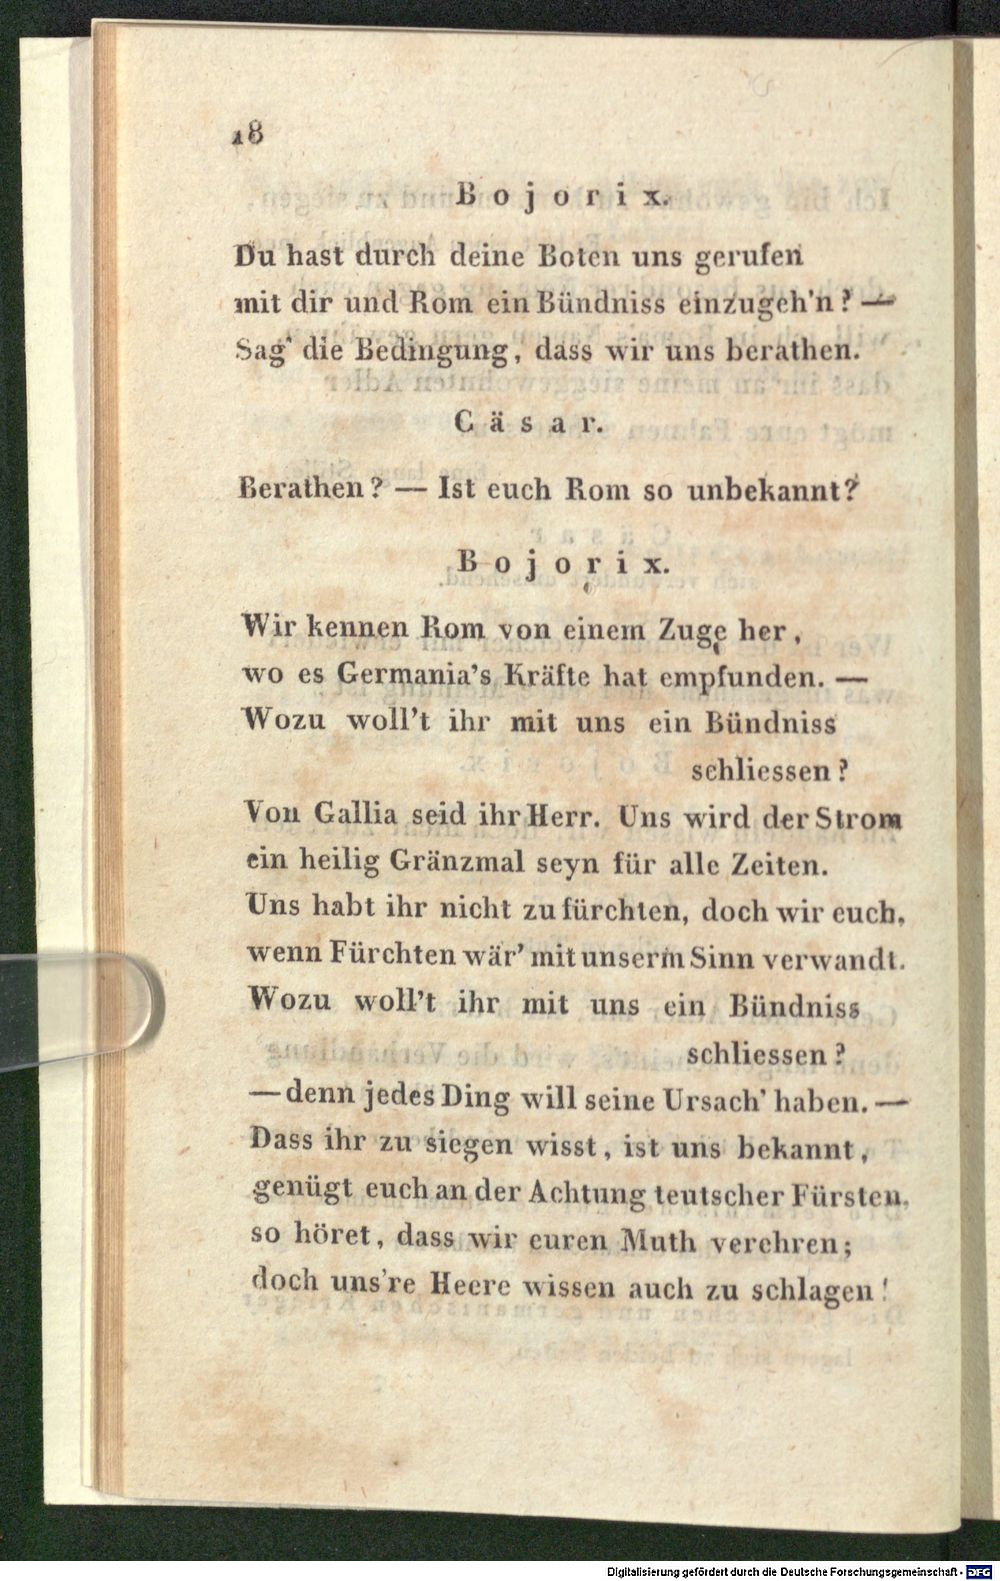 18
Bojorix.
Du hast durch deine Boten uns gerufen
mit dir und Rom ein Bündniss einzugeh'n? —
Sag' die Bedingung, dass wir uns berathen.
Cäsar.
Berathen? — Ist euch Rom so unbekannt?
Bojorix.
Wir kennen Rom von einem Zuge her,
wo es Germania's Kräfte hat empfunden. —
Wozu woll't ihr mit uns ein Bündniss
schliessen?
Von Gallia seid ihr Herr. Uns wird der Strom
ein heilig Gränzmal seyn für alle Zeiten.
Uns habt ihr nicht zu fürchten, doch wir euch,
wenn Fürchten wär' mit unserm Sinn verwandt.
Wozu woll't ihr mit uns ein Bündniss
schliessen?
— denn jedes Ding will seine Ursach' haben. —
Dass ihr zu siegen wisst, ist uns bekannt,
genügt euch an der Achtung teutscher Fürsten,
so höret, dass wir euren Muth verehren;
doch uns're Heere wissen auch zu schlagen!
Digitalisierung gefördert durch die Deutsche Forschungsgemeinschaft - DFG